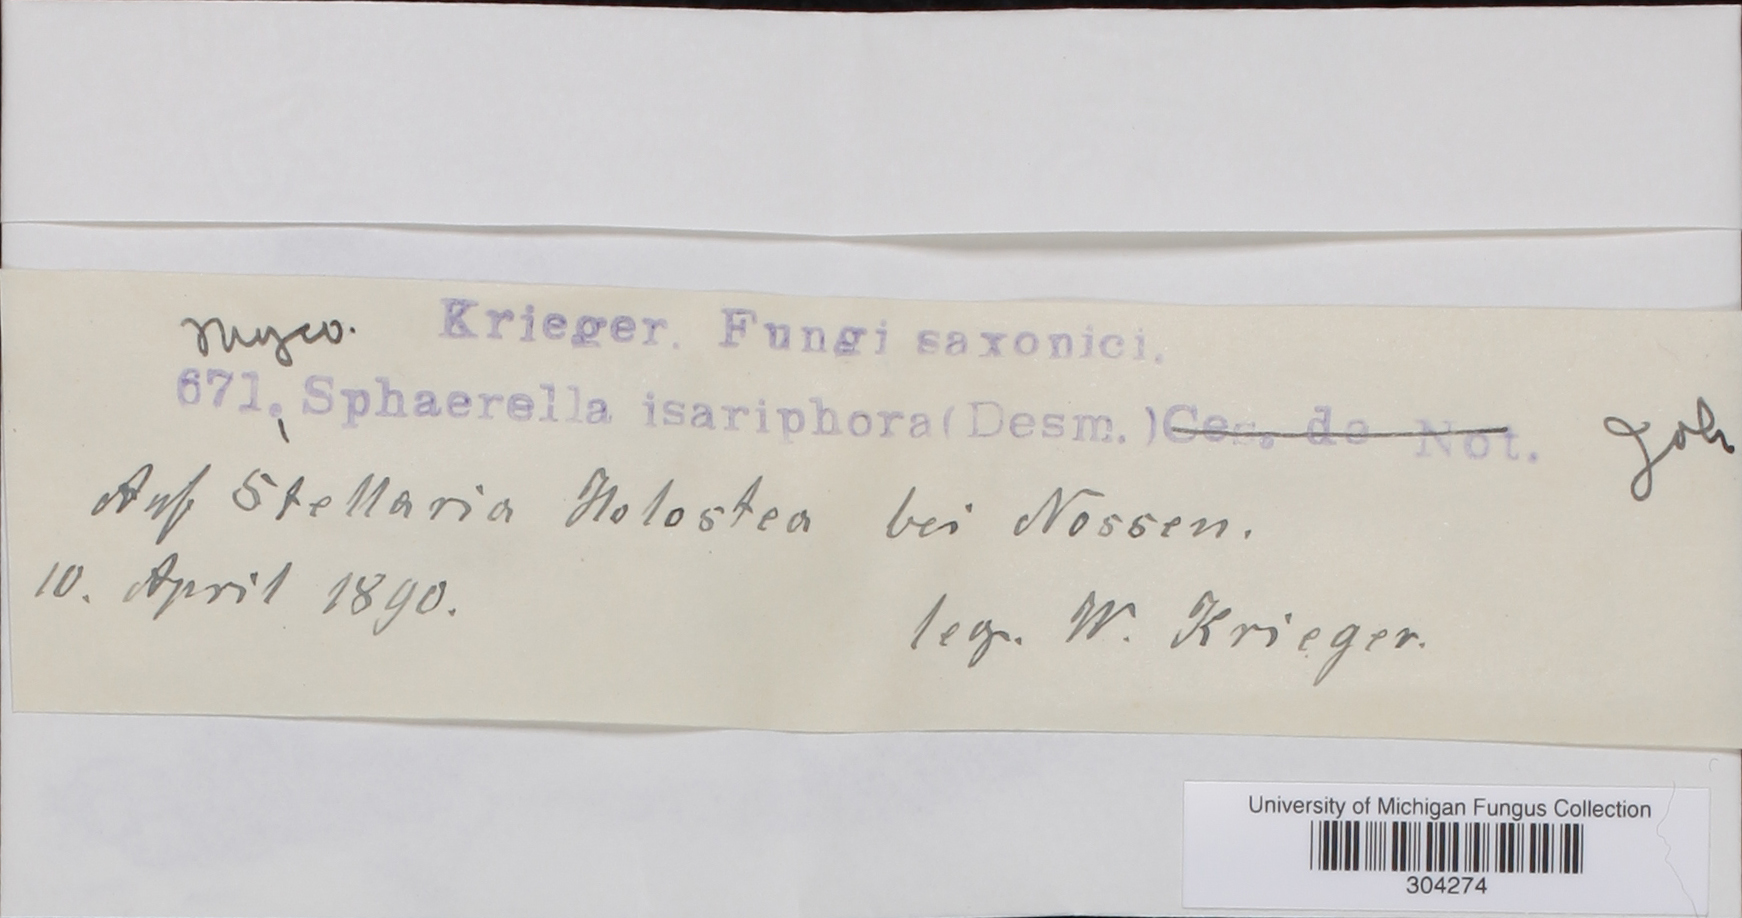 Myco. Krieger. Fungi saxonici.
671. Sphaerella isariphora (Desm.) Ces. de Not. Joh
Auf Stellaria Holostea bei Nossen.
10. April 1890.
leg. W. Krieger.
University of Michigan Fungus Collection
304274